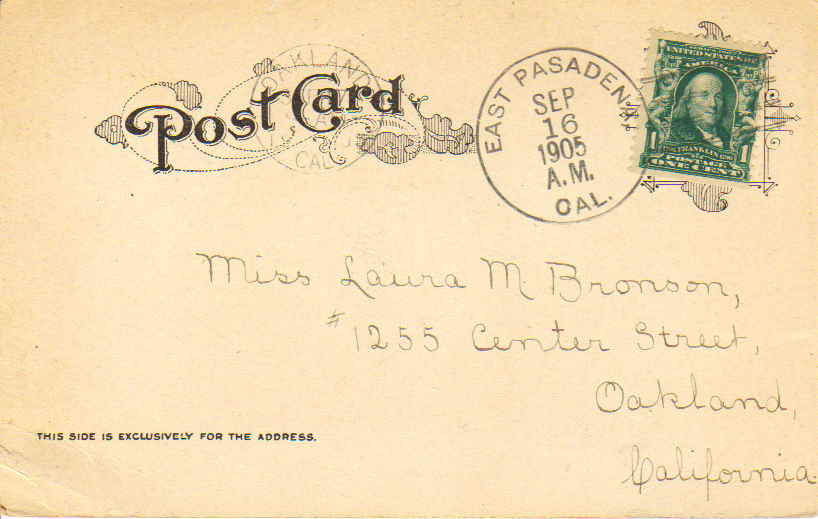 Post Card
OAKLAND
CAL.
EAST PASADENA
SEP
16
1905
A.M.
CAL.
UNITED STATES OF
AMERICA
1 FRANKLIN 1
POSTAGE
ONE CENT
Miss Laura M. Bronson,
#1255 Center Street,
Oakland,
California.
THIS SIDE IS EXCLUSIVELY FOR THE ADDRESS.